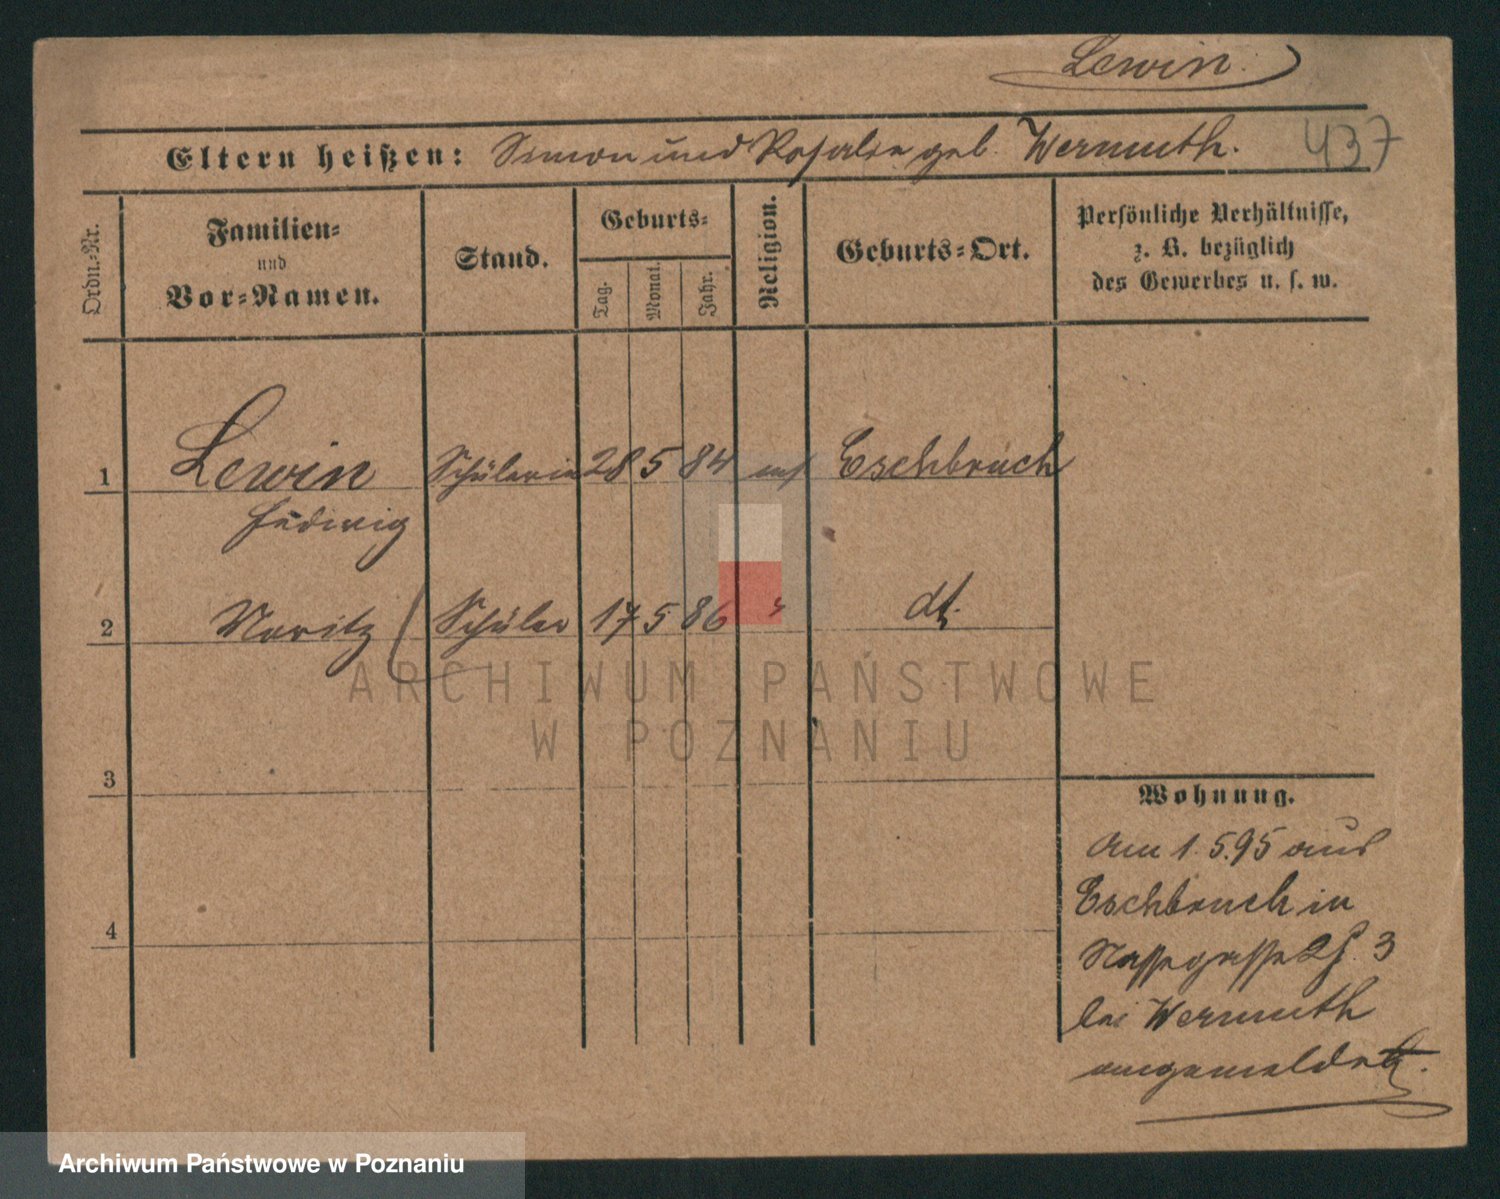 Lewin.
437
Eltern heißen: Simon und Rosalie geb. Wermuth.
Ordn.=Nr.
Familien=
und
Vor=Namen.
Stand.
Geburts=
Tag.
Monat.
Jahr.
Religion.
Geburts=Ort.
Persönliche Verhältnisse,
z. B. bezüglich
des Gewerbes u. s. w.
1 Lewin Schülerin 28 5 84 mos Eschbruch
Hedwig
2 Moritz Schüler 17 5 86 " dt.
3
4
Wohnung.
Am 1.5.95 aus
Eschbruch in
Nassegasse 3
bei Wermuth
angemeldet.
ARCHIWUM PAŃSTWOWE
W POZNANIU
Archiwum Państwowe w Poznaniu